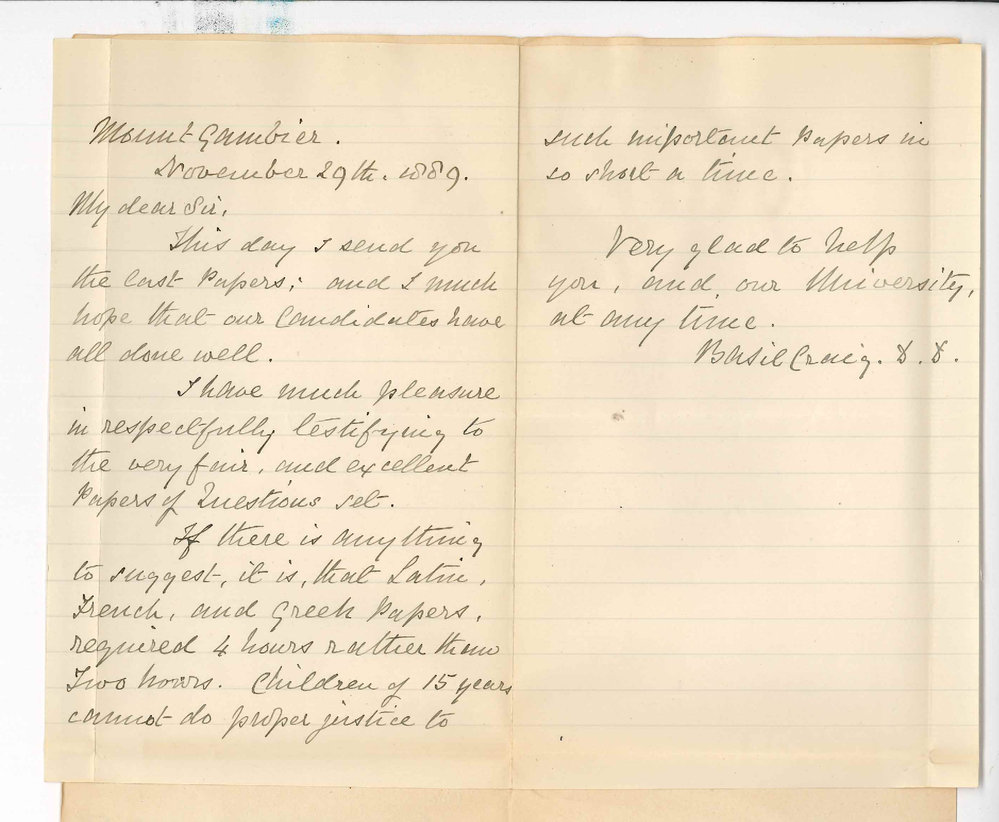 Mount Gambier.
November 29th. 1889.
My dear Sir,
This day I send you
the last Papers; and I much
hope that our Candidates have
all done well.
I have much pleasure
in respectfully testifying to
the very fair, and excellent
Papers of Questions set.
If there is anything
to suggest, it is, that Latin,
French, and Greek Papers,
required 4 hours rather than
Two hours. Children of 15 years
cannot do proper justice to
such important Papers in
so short a time.
Very glad to help
you, and, our University,
at any time.
Basil Craig. D. D.